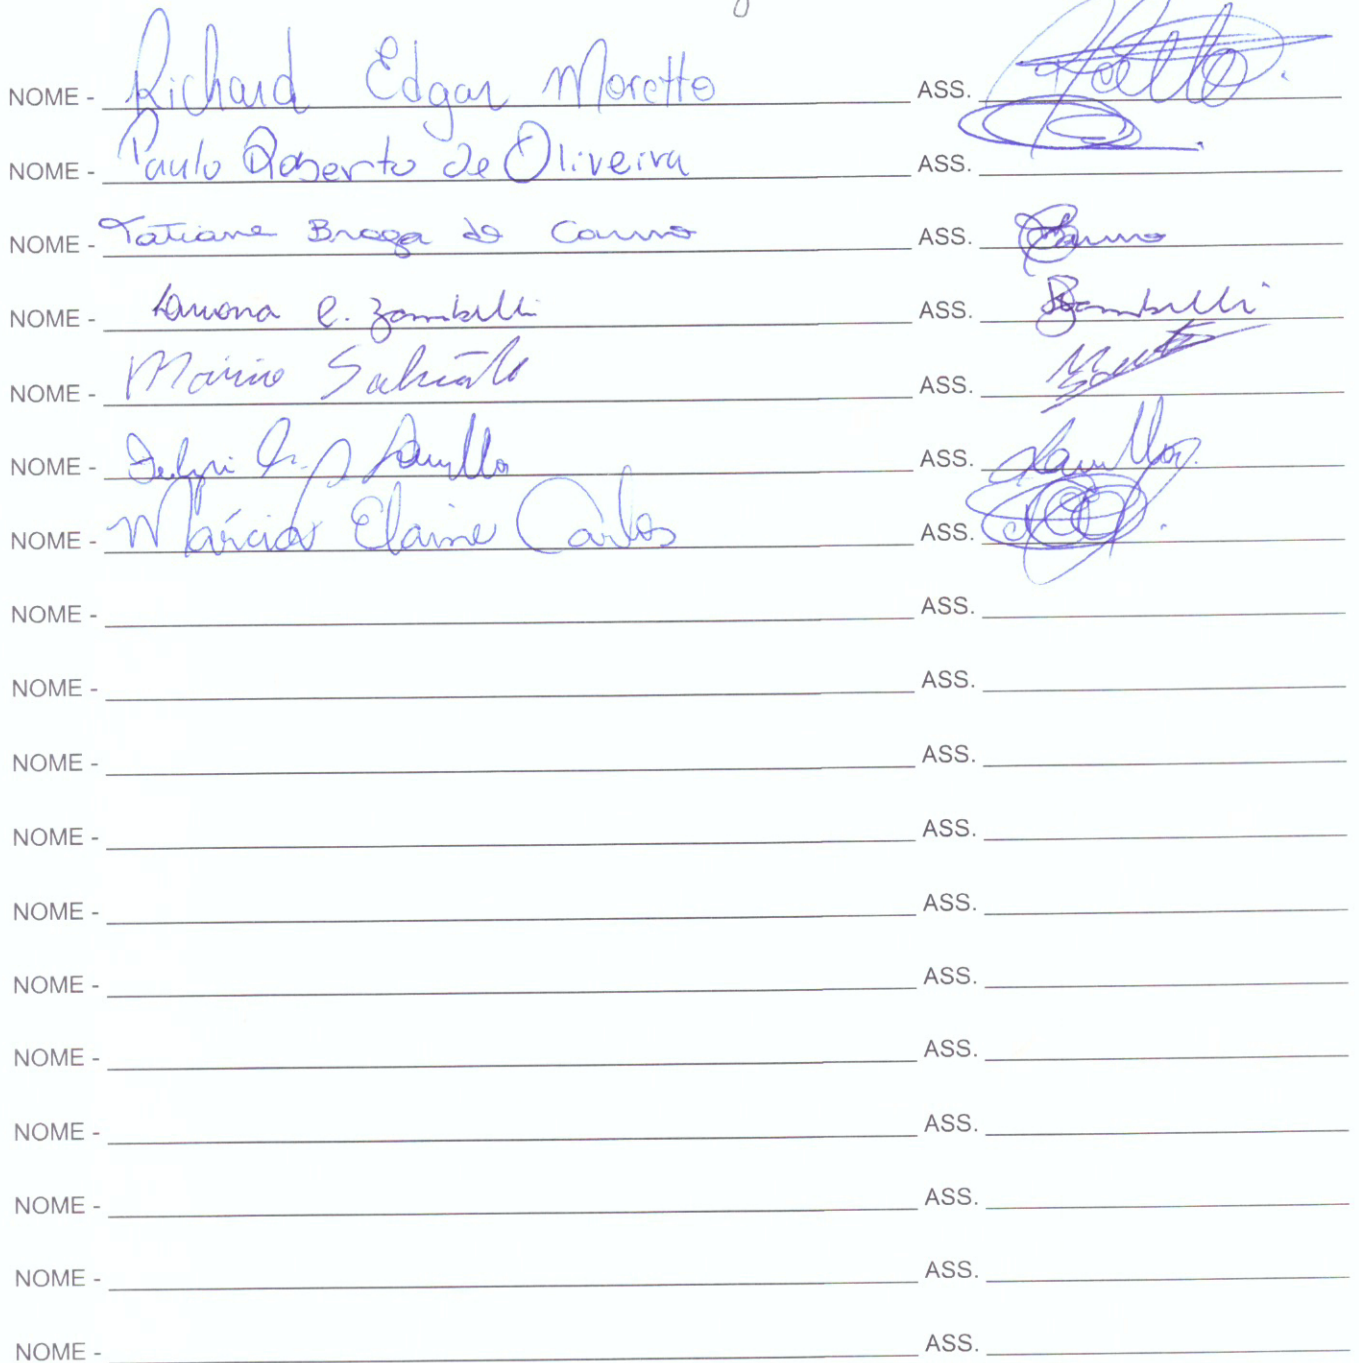 NOME - Richard Edgar Moretto ASS.
NOME - Paulo Roberto de Oliveira ASS.
NOME - Tatiane Braga do Carmo ASS. Carmo
NOME - Ramona C. Zambelli ASS. Zambelli
NOME - Marino ASS.
NOME - ASS.
NOME - Márcia Elaine Carlos ASS.
NOME - ASS.
NOME - ASS.
NOME - ASS.
NOME - ASS.
NOME - ASS.
NOME - ASS.
NOME - ASS.
NOME - ASS.
NOME - ASS.
NOME - ASS.
NOME - ASS.